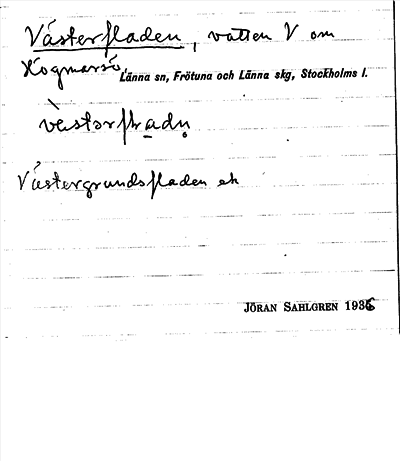 Västerfladen, vatten V om
Högmarsö,
Länna sn, Frötuna och Länna skg, Stockholms l.
Västergrundsfladen ek
JÖRAN SAHLGREN 1936